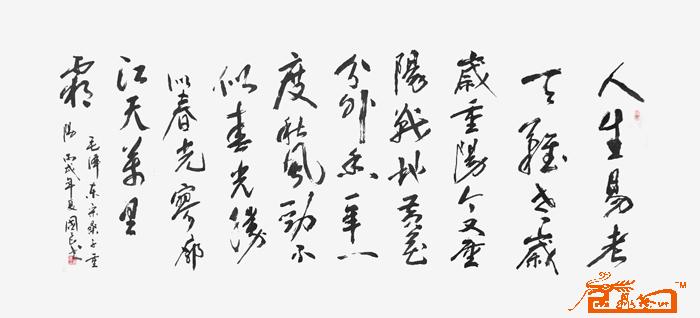 人生易老
天難老歲
歲重陽今又重
陽戰地黃花
分外香一年一
度秋風勁不
似春光勝
似春光寥廓
江天萬里
霜
毛澤東采桑子重
陽丙戌年夏國良書